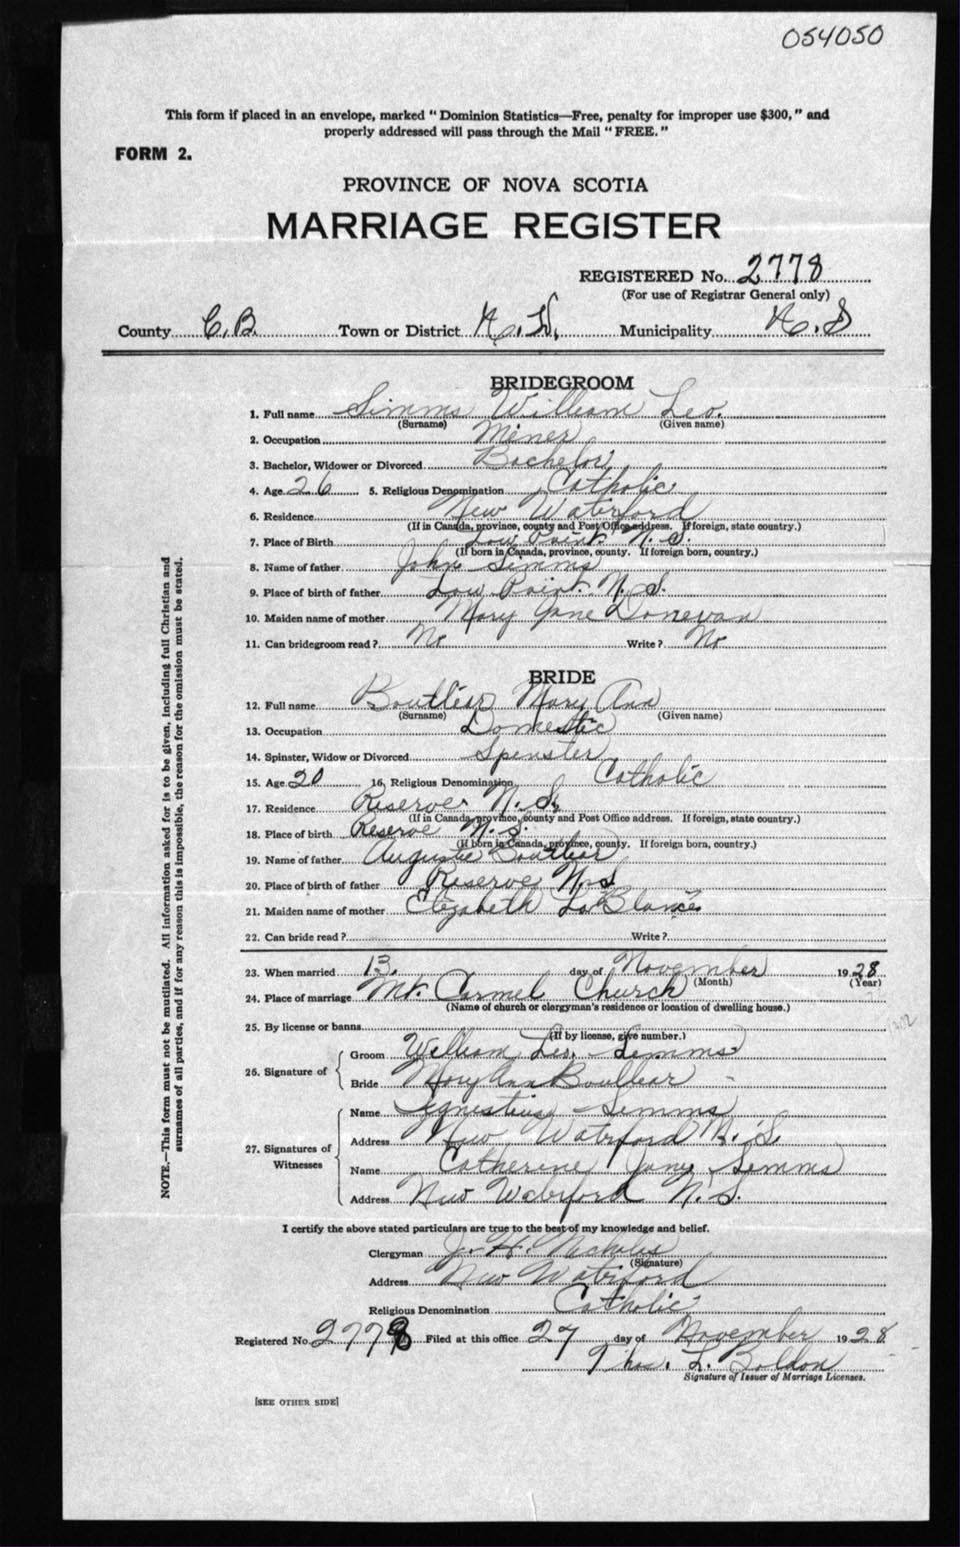 054050
This form if placed in an envelope, marked "Dominion Statistics—Free, penalty for improper use $300," and
properly addressed will pass through the Mail "FREE."
FORM 2.
PROVINCE OF NOVA SCOTIA
MARRIAGE REGISTER
REGISTERED No. 2778
(For use of Registrar General only)
County C.B. Town or District N.W. Municipality N.S
BRIDEGROOM
1. Full name Simms William Leo.
(Surname) (Given name)
2. Occupation Miner
3. Bachelor, Widower or Divorced Bachelor
4. Age 26 5. Religious Denomination Catholic
6. Residence New Waterford
(If in Canada, province, county and Post Office address. If foreign, state country.)
7. Place of Birth Low Point N.S.
(If born in Canada, province, county. If foreign born, country.)
8. Name of father John Simms
9. Place of birth of father Low Point N.S.
10. Maiden name of mother Mary Jane Donevan
11. Can bridegroom read? No Write? No
BRIDE
12. Full name Boutlier Mary Ann
(Surname) (Given name)
13. Occupation Domestic
14. Spinster, Widow or Divorced Spenster
15. Age 20 16. Religious Denomination Catholic
17. Residence Reserve N.S.
(If in Canada, province, county and Post Office address. If foreign, state country.)
18. Place of birth Reserve N.S.
(If born in Canada, province, county. If foreign born, country.)
19. Name of father Augustie Boutlier
20. Place of birth of father Reserve N.S
21. Maiden name of mother Elizabeth
22. Can bride read? Write?
23. When married 13. day of November 1928
(Month) (Year)
24. Place of marriage Mt. Carmel Church
(Name of church or clergyman's residence or location of dwelling house.)
25. By license or banns
(If by license, give number.)
26. Signature of Groom William Leo Simms
Bride Mary Ann Boutlier
27. Signatures of Witnesses
Name Simms
Address New Waterford N.S.
Name Catherine Jane Simms
Address New Waterford N.S.
I certify the above stated particulars are true to the best of my knowledge and belief.
Clergyman J. H. Nicholes
(Signature)
Address New Waterford
Religious Denomination Catholic
Registered No. 2778 Filed at this office 27 day of November 1928
Thos. L. Boldon
Signature of Issuer of Marriage Licenses.
[SEE OTHER SIDE]
NOTE.—This form must not be mutilated. All information asked for is to be given, including full Christian and
surnames of all parties, and if for any reason this is impossible, the reason for the omission must be stated.